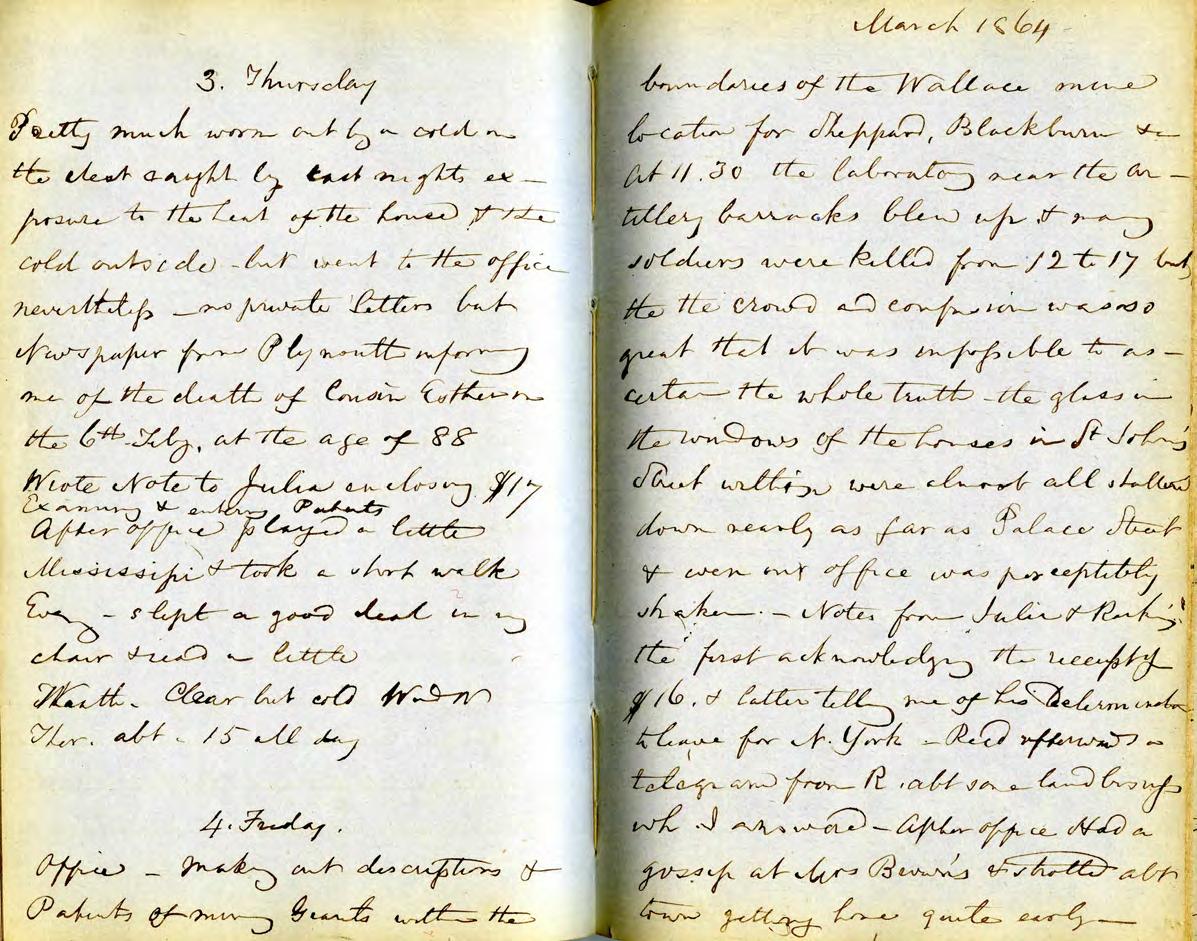 3. Thursday
Pretty much worn out by a cold on
the chest caught by last nights ex-
posure to the heat of the house & the
cold outside - but went to the office
nevertheless - no private letters but
Newspaper from Plymouth informing
me of the death of Cousin Esther on
the 6th Feby. at the age of 88
Wrote Note to Julia enclosing $17
Examining & entering Patents
After office played a little
Mississipi & took a short walk
Eveg - slept a good deal in my
chair & read a little
Weath. Clear but cold Wind N
Ther. abt - 15 all day
4. Friday.
Office - making out descriptions &
Patents of mining Grants within the
March 1864
boundaries of the Wallace mine
location for Sheppard, Blackburn &c
At 11.30 the laboratory near the ar-
tillery barracks blew up & many
soldiers were killed from 12 to 17 but
the the crowd and confusion was so
great that it was impossible to as-
certain the whole truth - the glass in
the windows of the houses in St John's
Street within were almost all shattered
down nearly as far as Palace Street
& even our office was perceptibly
shaken. - Notes from Julia &
the first acknowledging the receipt of
$16. & latter telling me of his Determination
to leave for N. York - Recd afterwards a
telegram from R. abt some land business
wh. I answered - After office Had a
gossip at Mrs Brown's & strolled abt
town getting home quite early -